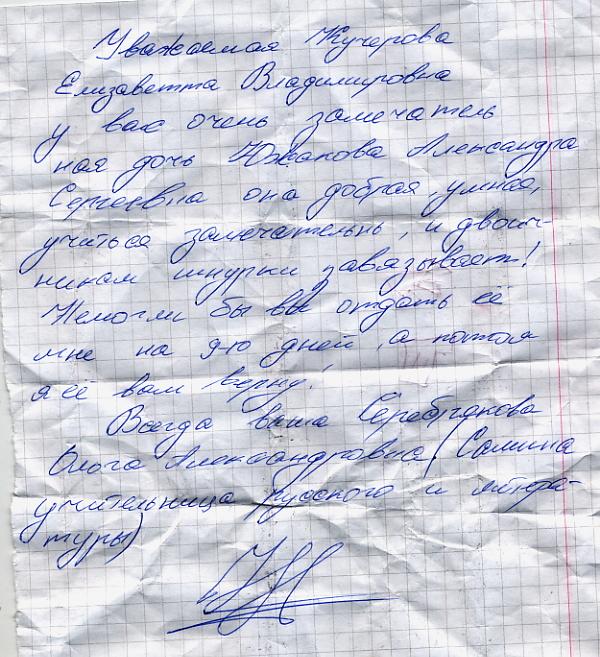 Уважаемая Кучерова
Елизаветта Владимировна
у вас очень замечатель
ная дочь Южакова Александра
Сергеевна она добрая, умная,
учиться замечательнь, и двоеч-
никам шнурки завязывает!
Немогли бы вы отдать её
мне на 9-10 дней, а потом
я её вам верну!
Всегда ваша Серебрякова
Ольга Александровна (Сашина
учительница русского и литера-
туры)